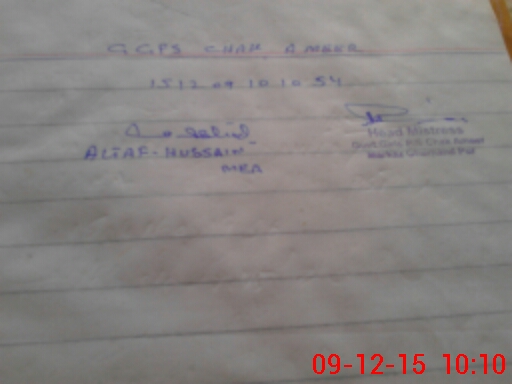 GGPS CHAH AMEER
1512 09 10 10 54
ALTAF-HUSSAIN
MEA
Head Mistress
Govt. Girls P/S Chah Ameer
Markaz
09-12-15 10:10